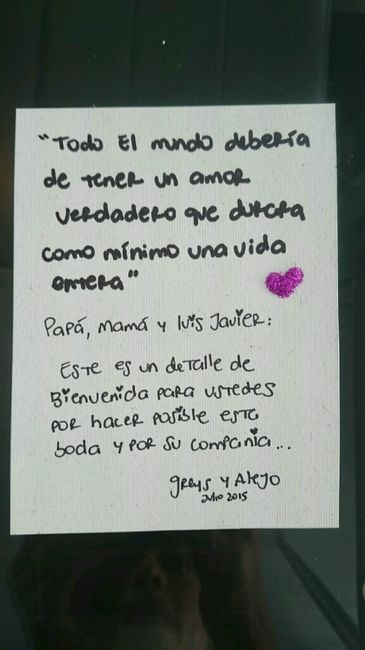 "Todo El mundo debería
de tener un amor
verdadero que durara
como mínimo una vida
entera"
Papá, Mamá y Luis Javier:
Este es un detalle de
Bienvenida para ustedes
por hacer posible esta
boda y por su compania...
Greys y Alejo
Julio 2015